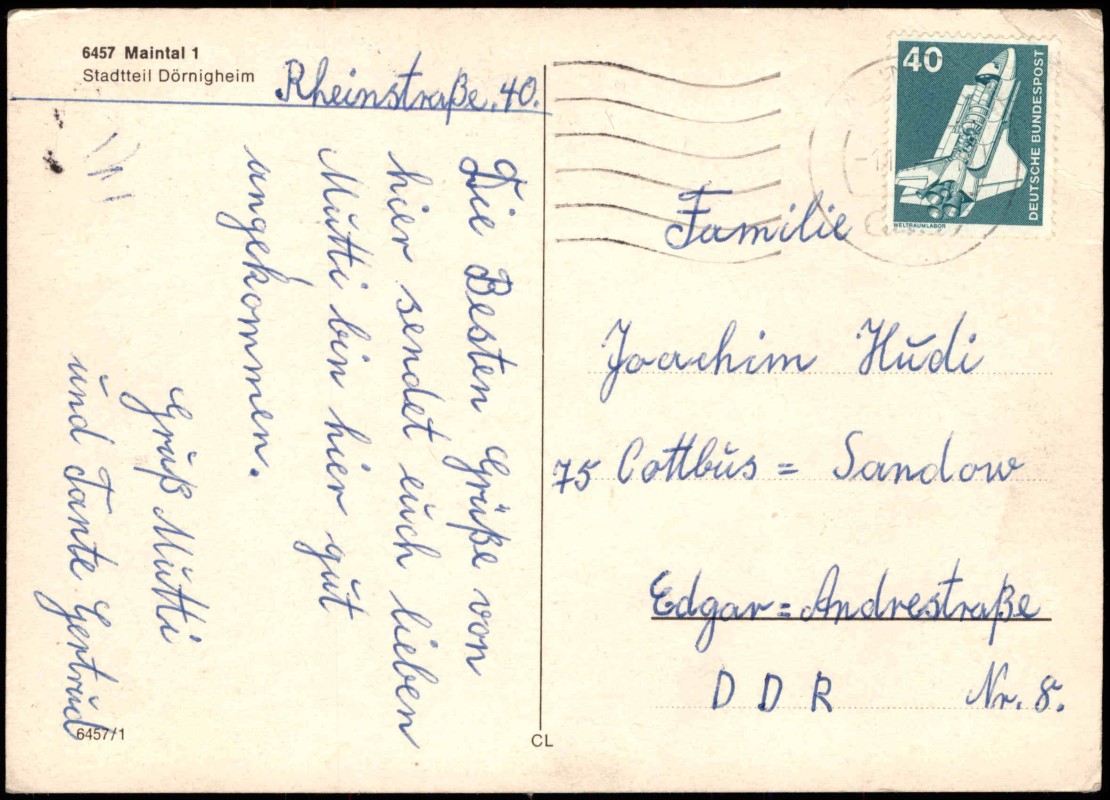 6457 Maintal 1
Stadtteil Dörnigheim
Rheinstraße. 40.
Die Besten Grüße von
hier sendet euch lieben
Mutti bin hier gut
angekommen.
Gruß Mutti
und Tante Gertrud
6457/1
CL
40
DEUTSCHE BUNDESPOST
WELTRAUMLABOR
Familie
Joachim Hudi
75 Cottbus = Sandow
Edgar = Andrestraße
DDR Nr. 8.